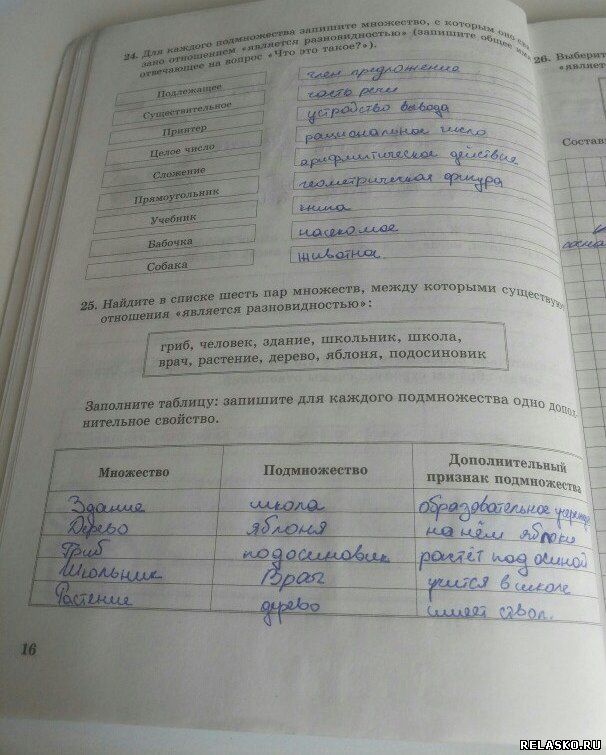 24. Для каждого подмножества запишите множество, с которым оно свя-
зано отношением «является разновидностью» (запишите общее имя,
отвечающее на вопрос «Что это такое?»).
Подлежащее
член предложения
Существительное
часть речи
Принтер
устройство вывода
Целое число
рациональное число
Сложение
арифмитическое действие
Прямоугольник
геометрическая фигура
Учебник
книга
Бабочка
насекомое
Собака
животное
25. Найдите в списке шесть пар множеств, между которыми существуют
отношения «является разновидностью»:
гриб, человек, здание, школьник, школа,
врач, растение, дерево, яблоня, подосиновик
Заполните таблицу: запишите для каждого подмножества одно допол-
нительное свойство.
Множество
Подмножество
Дополнительный
признак подмножества
Здание школа образовательное
Дерево яблоня на нём яблоки
Гриб подосиновик растёт под осиной
Школьник Врач учится в школе
Растение дерево имеет ствол.
16
26. Выберит
«являет
Состав
RELASKO.RU